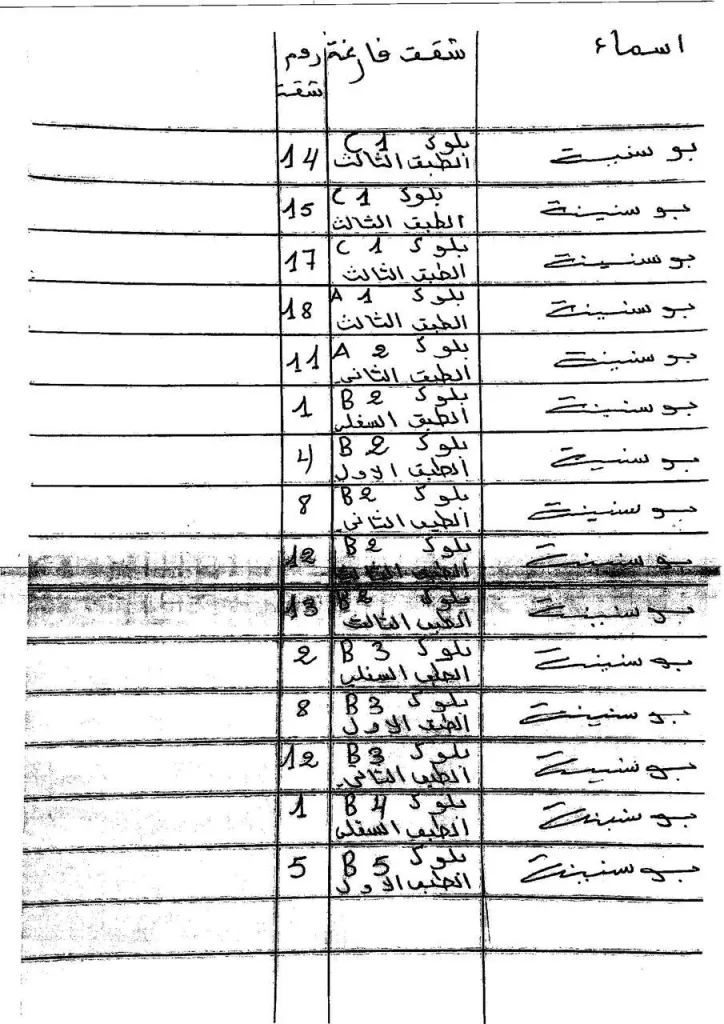 اسماء شقت فارغة روم
شقت
بو سنينة بلوك C 1 14
الطبق الثالث
بو سنينة بلوك C 1 15
الطبق الثالث
بو سنينة بلوك C 1 17
الطبق الثالث
بو سنينة بلوك A 1 18
الطبق الثالث
بو سنينة بلوك A 2 11
الطبق الثاني
بو سنينة بلوك B 2 1
الطبق السفلي
بو سنينة بلوك B 2 4
الطبق الاول
بو سنينة بلوك B 2 8
الطبق الثاني
بو سنينة بلوك B 2 12
الطبق
بو سنينة بلوك B 2 13
الطبق الثالث
بو سنينة بلوك B 3 2
الطبق السفلي
بو سنينة بلوك B 3 8
الطبق الاول
بو سنينة بلوك B 3 12
الطبق الثاني
بو سنينة بلوك B 4 1
الطبق السفلي
بو سنينة بلوك B 5 5
الطبق الاول